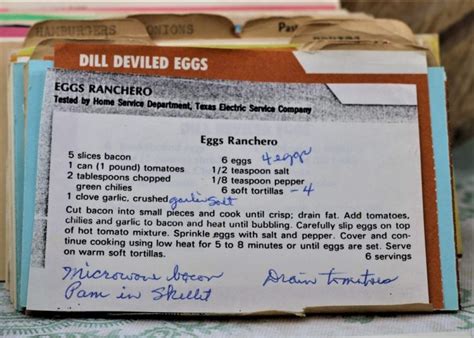 HAMBURGERS
ONIONS
Pas
DILL DEVILED EGGS
EGGS RANCHERO
Tested by Home Service Department, Texas Electric Service Company
Eggs Ranchero
5 slices bacon 6 eggs 4 eggs
1 can (1 pound) tomatoes 1/2 teaspoon salt
2 tablespoons chopped 1/8 teaspoon pepper
green chilies 6 soft tortillas - 4
1 clove garlic, crushed garlic salt
Cut bacon into small pieces and cook until crisp; drain fat. Add tomatoes,
chilies and garlic to bacon and heat until bubbling. Carefully slip eggs on top
of hot tomato mixture. Sprinkle eggs with salt and pepper. Cover and con-
tinue cooking using low heat for 5 to 8 minutes or until eggs are set. Serve
on warm soft tortillas. 6 servings
Microwave bacon Drain tomatoes
Pam in Skillit